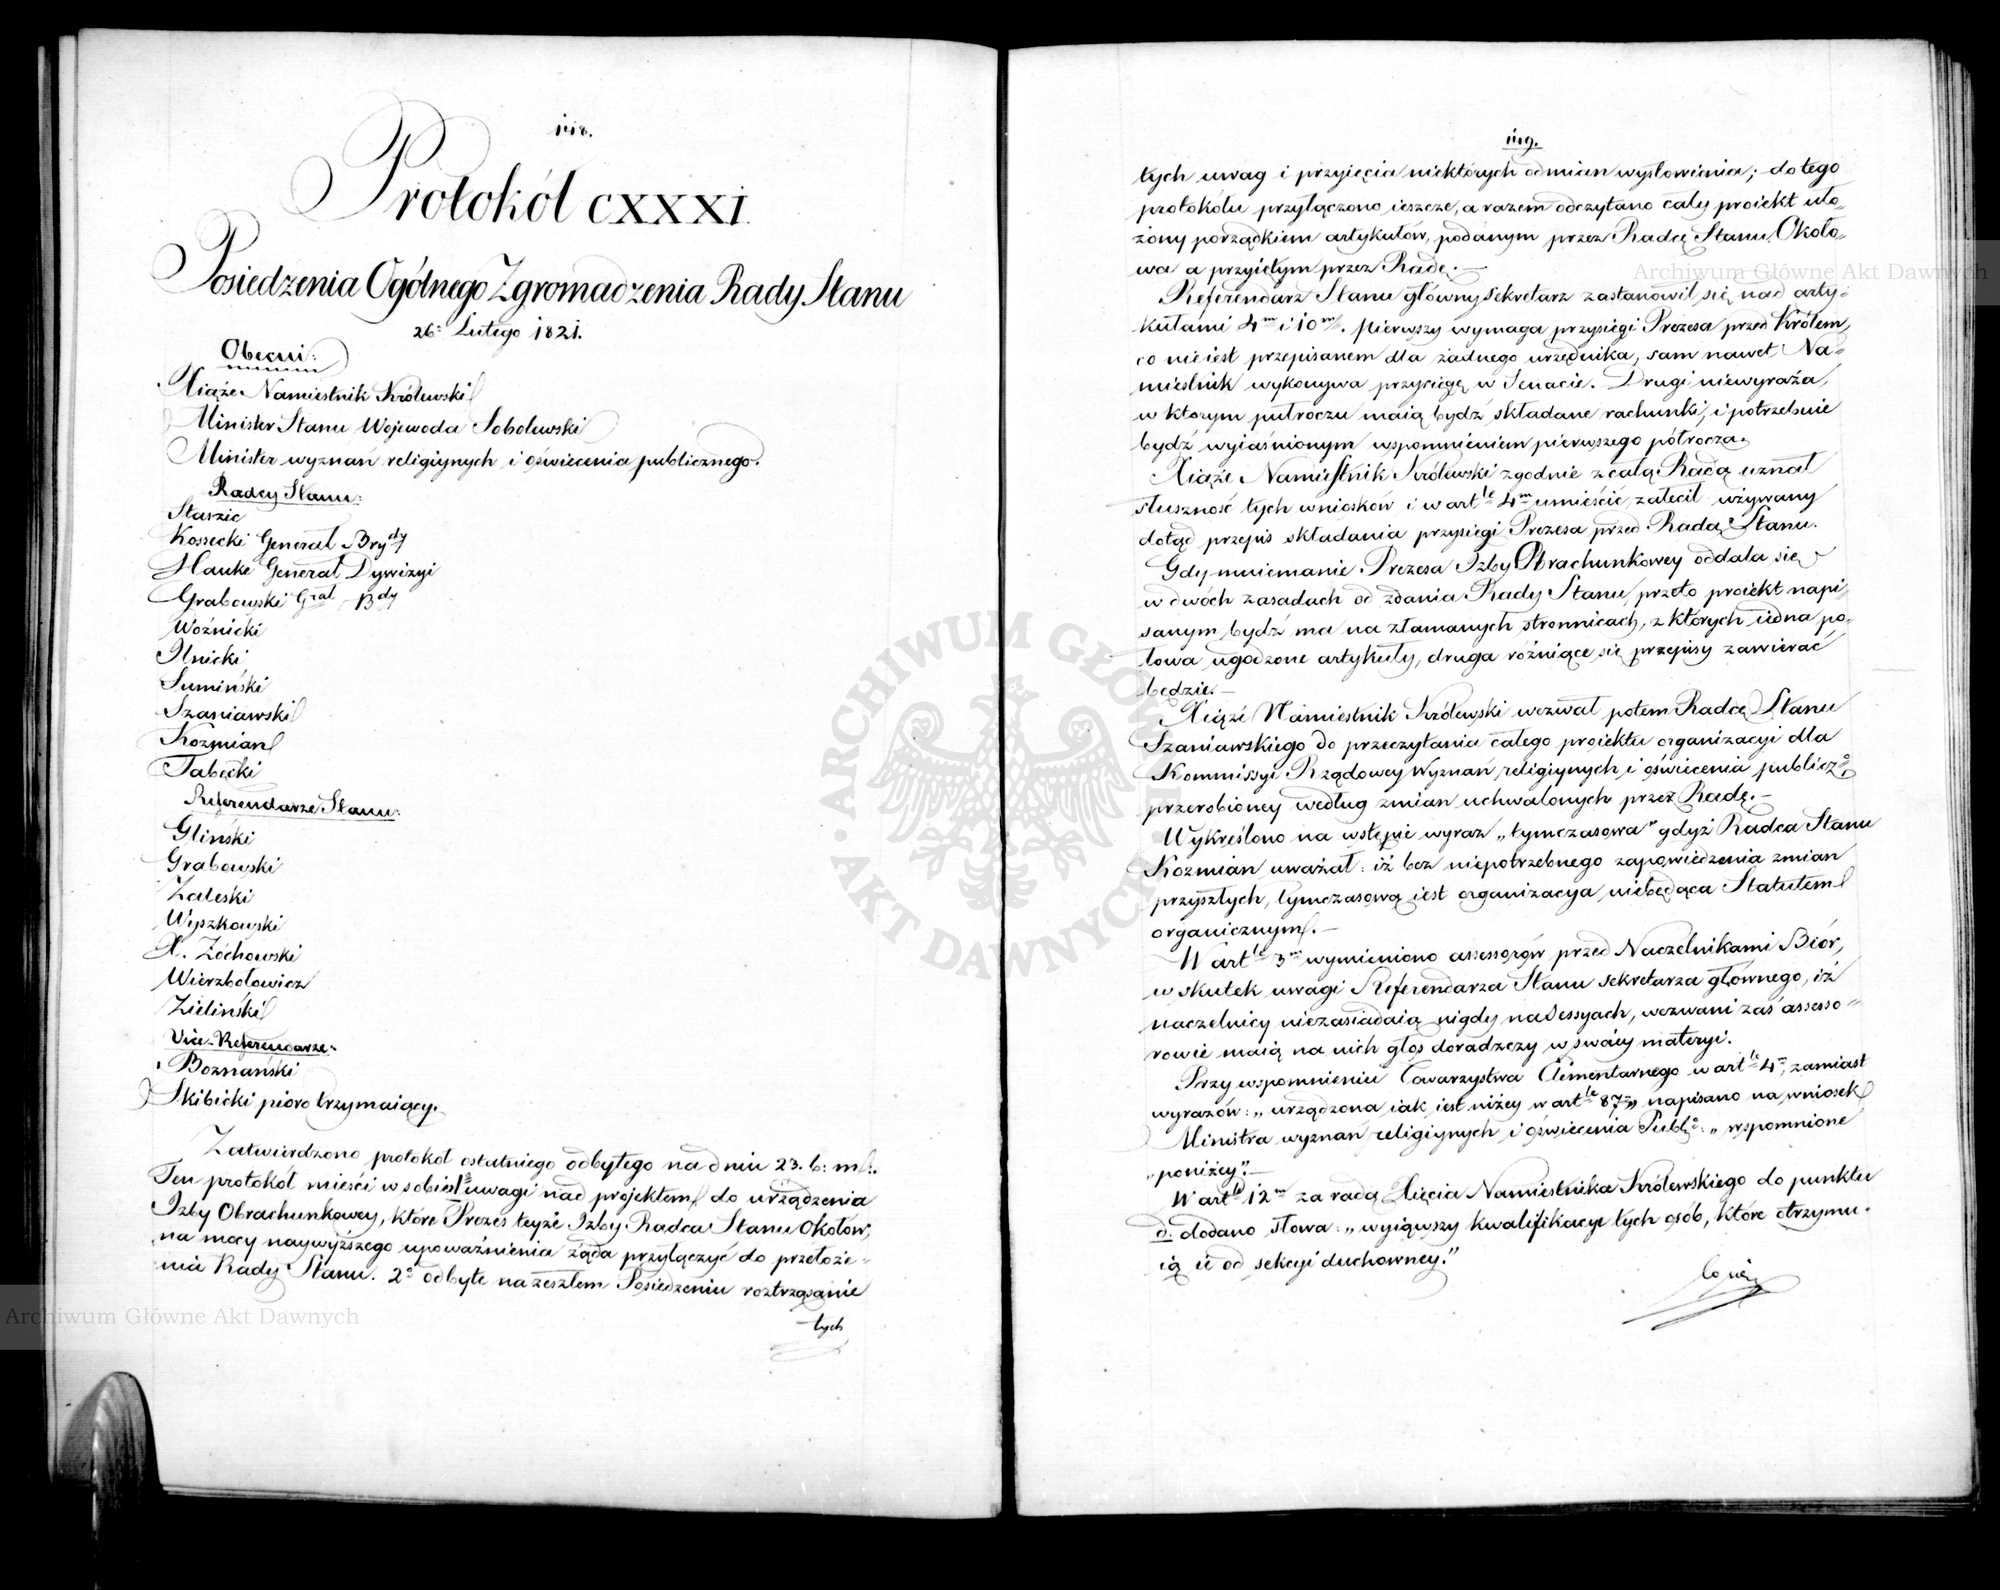 118.
Protokół CXXXI.
Posiedzenia Ogólnego Zgromadzenia Rady Stanu
26º Lutego 1821.
Obecni:
Xiąże Namiestnik Królewski
Minister Stanu Wojewoda Sobolewski
Minister wyznań religiynych i oświecenia publicznego.
Radcy Stanu:
Staszic
Kossecki Generał Brydy
Hauke Generał Dywizyi
Grabowski Grał Bdy
Woźnicki
Ilnicki
Sumiński
Szaniawski
Kozmian
Tabęcki
Referendarze Stanu:
Gliński
Grabowski
Zaleski
Wyszkowski
X. Zóchowski
Wierzbołowicz
Zieliński
Vice-Referendarze:
Boznański
Skibicki pióro trzymaiący.
Zatwierdzono protokół ostatniego odbytego na dniu 23. b: m:.
Ten protokół mieści w sobie 1º uwagi nad projektem do urządzenia
Izby Obrachunkowey, które Prezes teyże Izby Radca Stanu Okołów,
na mocy naywyższego upoważnienia żąda przyłączyć do przełoże=
nia Rady Stanu. 2º odbyte na zeszłem Posiedzeniu roztrząsanie
tych
119.
tych uwag i przyięcia niektórych odmian wysłowienia; do tego
protokółu przyłączono ieszcze, a razem odczytano cały proiekt uło=
żony porządkiem artykułów, podanym przez Radcę Stanu Około=
wa a przyiętym przez Radę.—
Referendarz Stanu główny Sekretarz zastanowił się nad arty=
kułami 4m i 10m. pierwszy wymaga przysięgi Prezesa przed Królem,
co nieiest przepisanem dla żadnego urzędnika, sam nawet Na=
miestnik wykonywa przysięgę w Senacie. Drugi niewyraża,
w którym półroczu maią bydź składane rachunki, i potrzebnie
bydź wyiaśnionym wspomnieniem pierwszego półrocza.
Xiąże Namiestnik Królewski zgodnie z całą Radą uznał
słuszność tych wniosków i w artle 4m umieścić zalecił używany
dotąd przepis składania przysięgi Prezesa przed Radą Stanu.
Gdy mniemanie Prezesa Izby Obrachunkowey oddala się
w dwóch zasadach od zdania Rady Stanu, przeto proiekt napi=
sanym bydź ma na złamanych stronnicach, z których iedna po=
łowa ugodzone artykuły, druga różniące się przepisy zawierać
będzie.—
Xiąże Namiestnik Królewski wezwał potem Radcę Stanu
Szaniawskiego do przeczytania całego proiektu organizacyi dla
Kommissyi Rządowey Wyznań religiynych i oświecenia publiczº
przerobioney według zmian uchwalonych przez Radę.—
Wykreślono na wstępie wyraz „tymczasowa" gdyż Radca Stanu
Kozmian uważał: iż bez niepotrzebnego zapowiedzenia zmian
przyszłych, tymczasową iest organizacya niebędąca Statutem
organicznym.—
W artle 3m wymieniono assessorów przed Naczelnikami Biór,
w skutek uwagi Referendarza Stanu sekretarza głównego, iż
naczelnicy niezasiadaią nigdy na Sessyach, wezwani zaś assesso=
rowie maią na nich głos doradzczy w swoiey materyi.
Przy wspomnieniu Towarzystwa Elementarnego w artle 4m, zamiast
wyrazów: „urządzona iak iest niżey w artle 87m" napisano na wniosek
Ministra wyznań religiynych i oświecenia Publº: „wspomnione
„poniżey".—
W artle 12m za radą Xięcia Namiestnika Królewskiego do punktu
d. dodano słowa: „wyiąwszy kwalifikacye tych osób, które otrzymu=
ią ie od sekcyi duchowney."